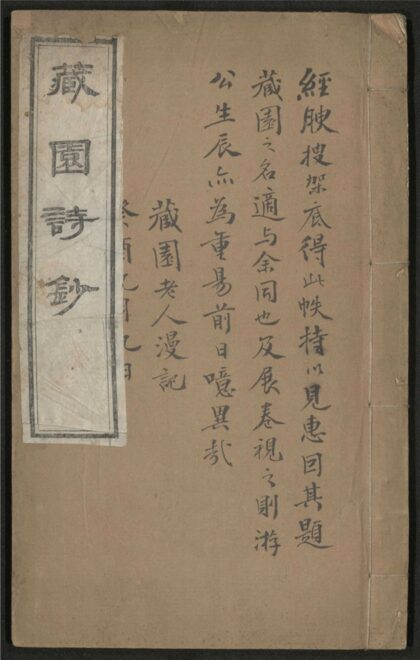 經腴搜架底得此帙持以見惠因其題
藏園之名適与余同也及展卷視之則游
公生辰亦為重昜前日噫異哉
藏園老人漫記
癸酉九月九日
藏園詩鈔